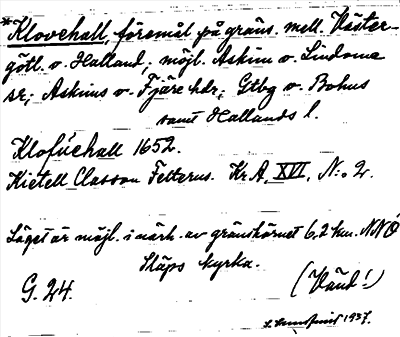 *Klovehall, föremål på gräns. mell. Väster-
götl. o. Halland; möjl. Askim o. Lindome
sr; Askims o. Fjäre hdr; Gtbg o. Bohus
samt Hallands l.
Klofüehall 1652.
Kietell Classon Felterus. Kr.A, XVI, N:o 2.
Läget är möjl. i närh. av gränshörnet 6,2 km. NNÖ
Släps kyrka.
G. 24.
(Vänd!)
1937.